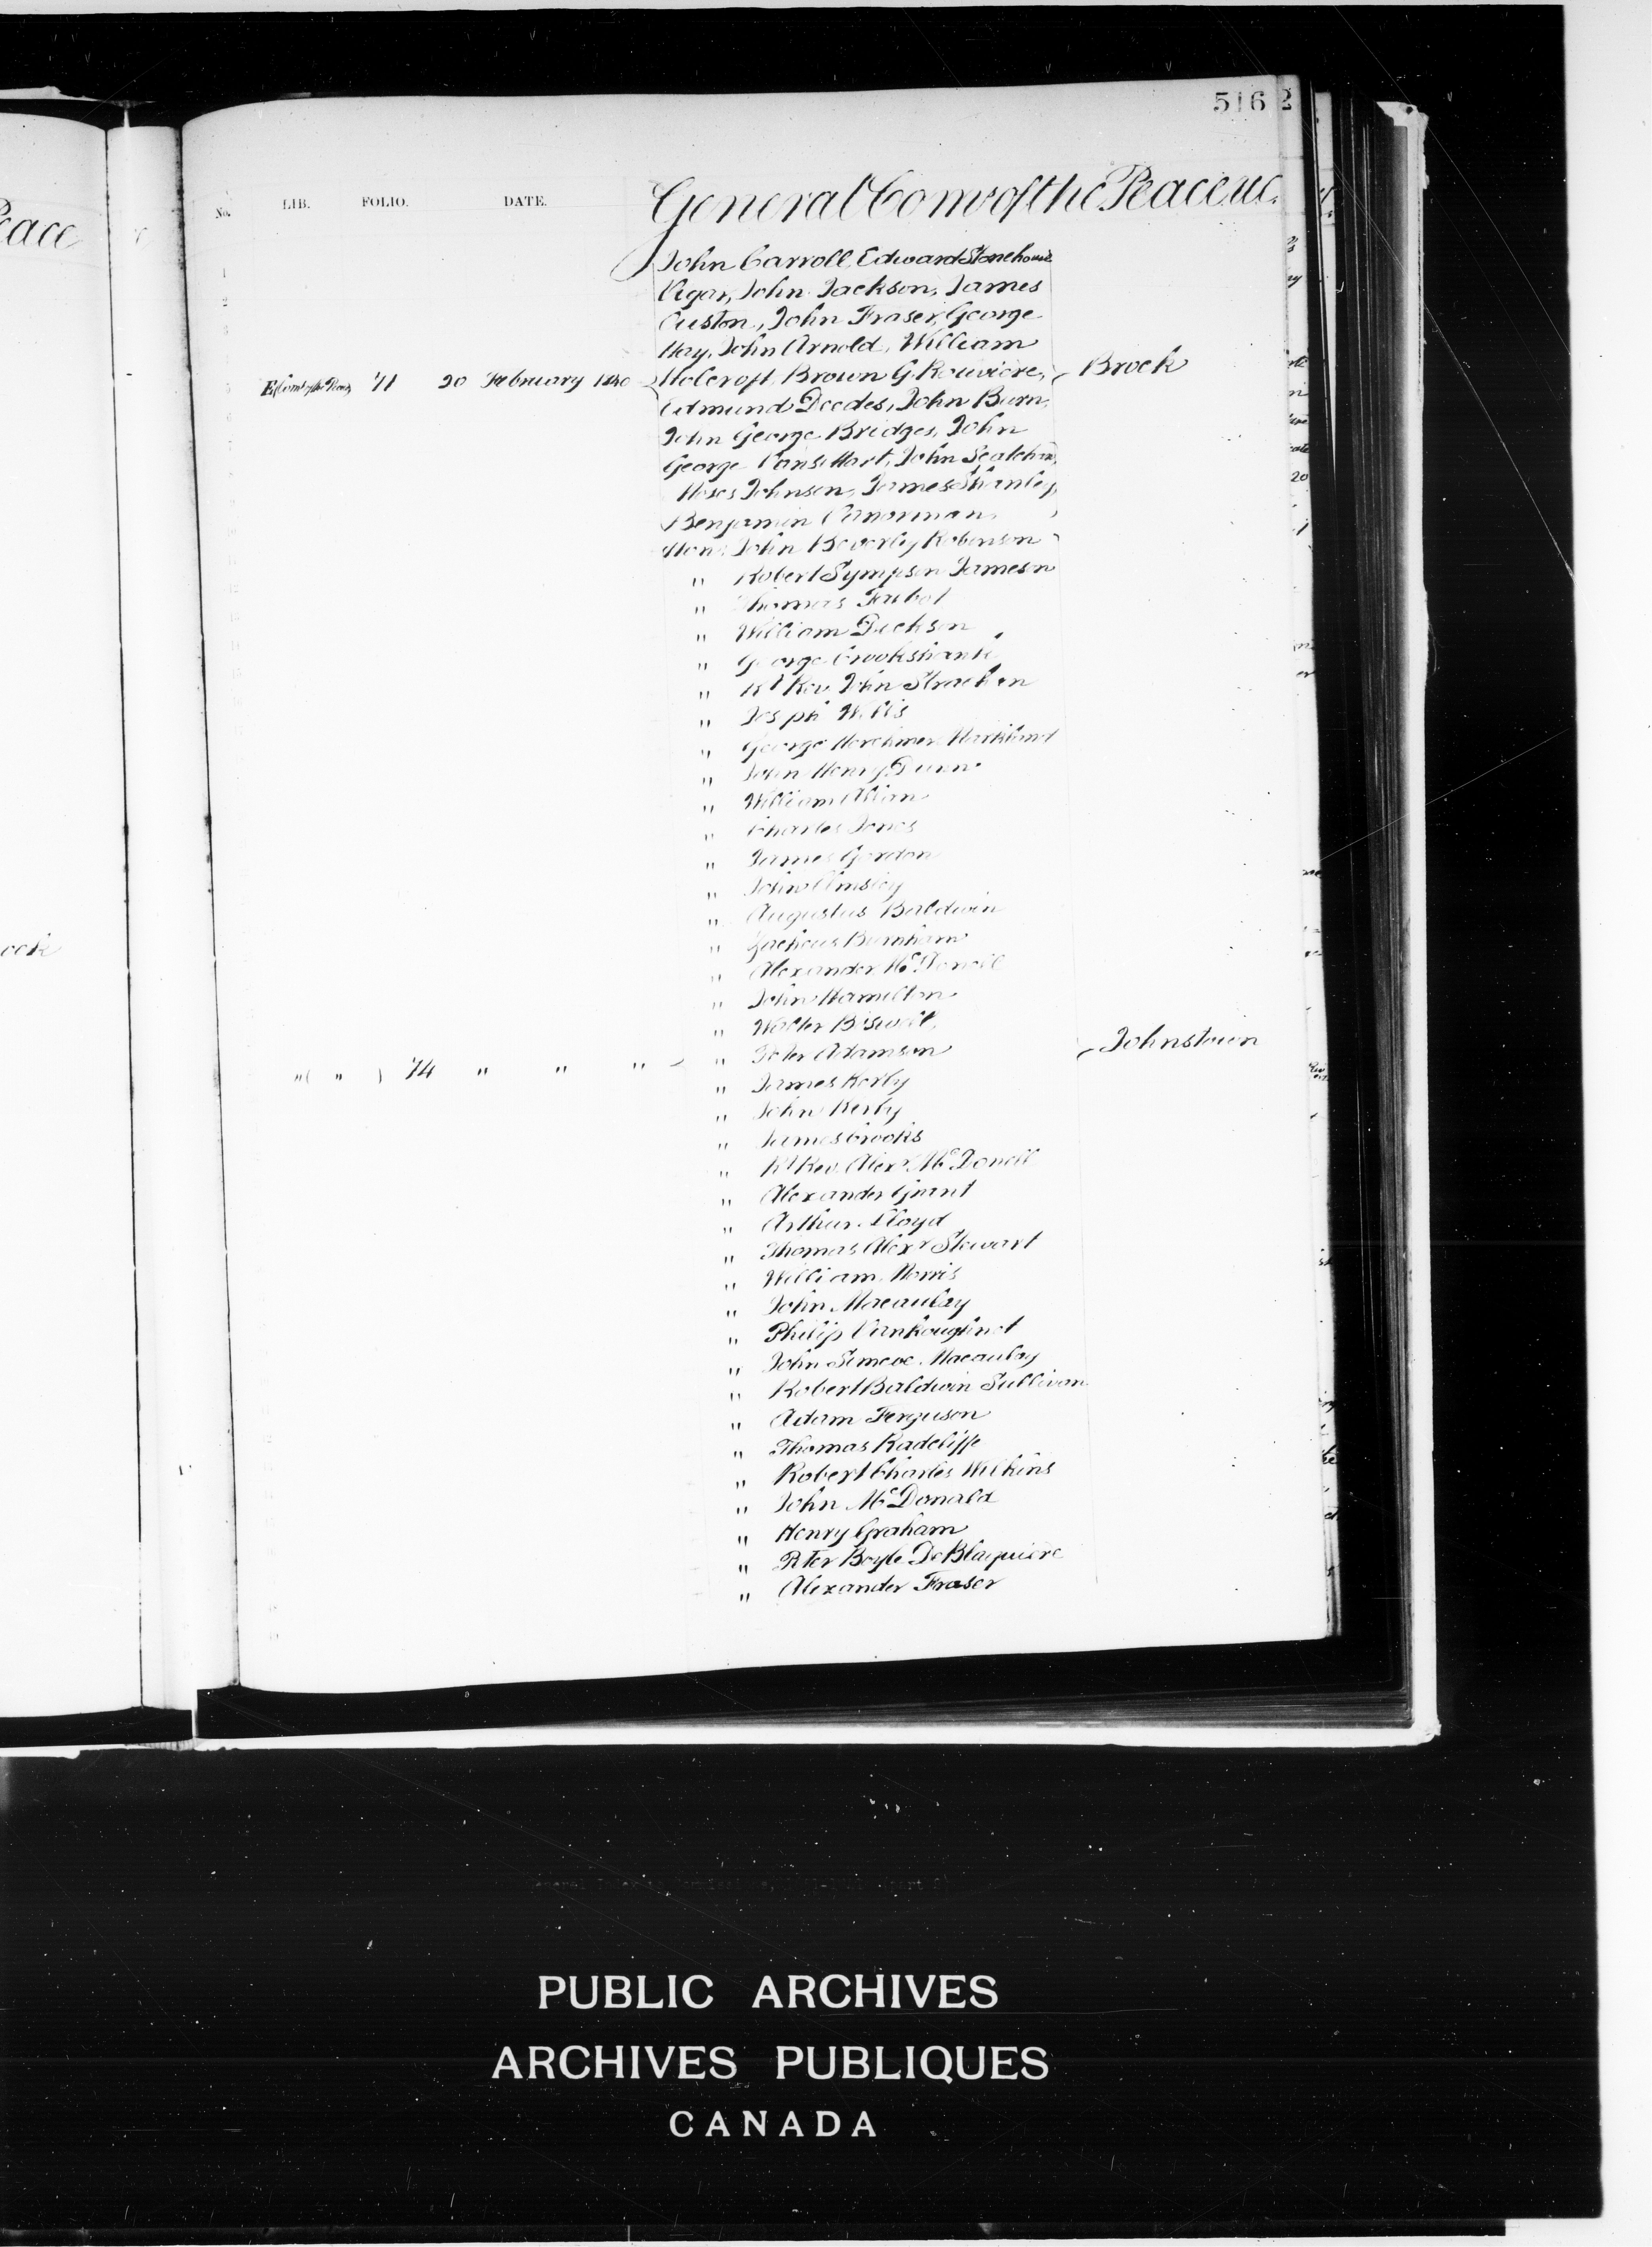 516
No. LIB. FOLIO. DATE. General Coms of the Peace UC.
John Carroll, Edward Stonehouse
Vigar, John Jackson, James
Custon, John Fraser, George
Hay, John Arnold, William
E (Coms of the Peace) 71 20 February 1840 Holcroft, Brown G. Rouviere, Brock
Edmund Deedes, John Burn,
John George Bridges, John
George Vansittart, John Scatcherd,
Moses Johnson, James Shanley,
Benjamin Vannorman.
Hon. John Beverley Robinson
" Robert Sympson Jameson
" Thomas Talbot
" William Dickson
" George Crookshank
" Rt Rev. John Strachan
" Joseph Wells
" George Herchmer Markland
" John Henry Dunn
" William Allan
" Charles Jones
" James Gordon
" John Elmsley
" Augustus Baldwin
" Zacheus Burnham
" Alexander McDonell
" John Hamilton
" Walter Boswell
" ( " ) 74 " " " " Peter Adamson Johnstown
" James Kerby
" John Kerby
" James Crooks
" Rt Rev. Alexr McDonell
" Alexander Grant
" Arthur Lloyd
" Thomas Alexr Stewart
" William Morris
" John Macaulay
" Philip Vankoughnet
" John Simcoe Macaulay
" Robert Baldwin Sullivan
" Adam Ferguson
" Thomas Radcliffe
" Robert Charles Wilkins
" John McDonald
" Henry Graham
" Peter Boyle De Blaquiere
" Alexander Fraser
PUBLIC ARCHIVES
ARCHIVES PUBLIQUES
CANADA